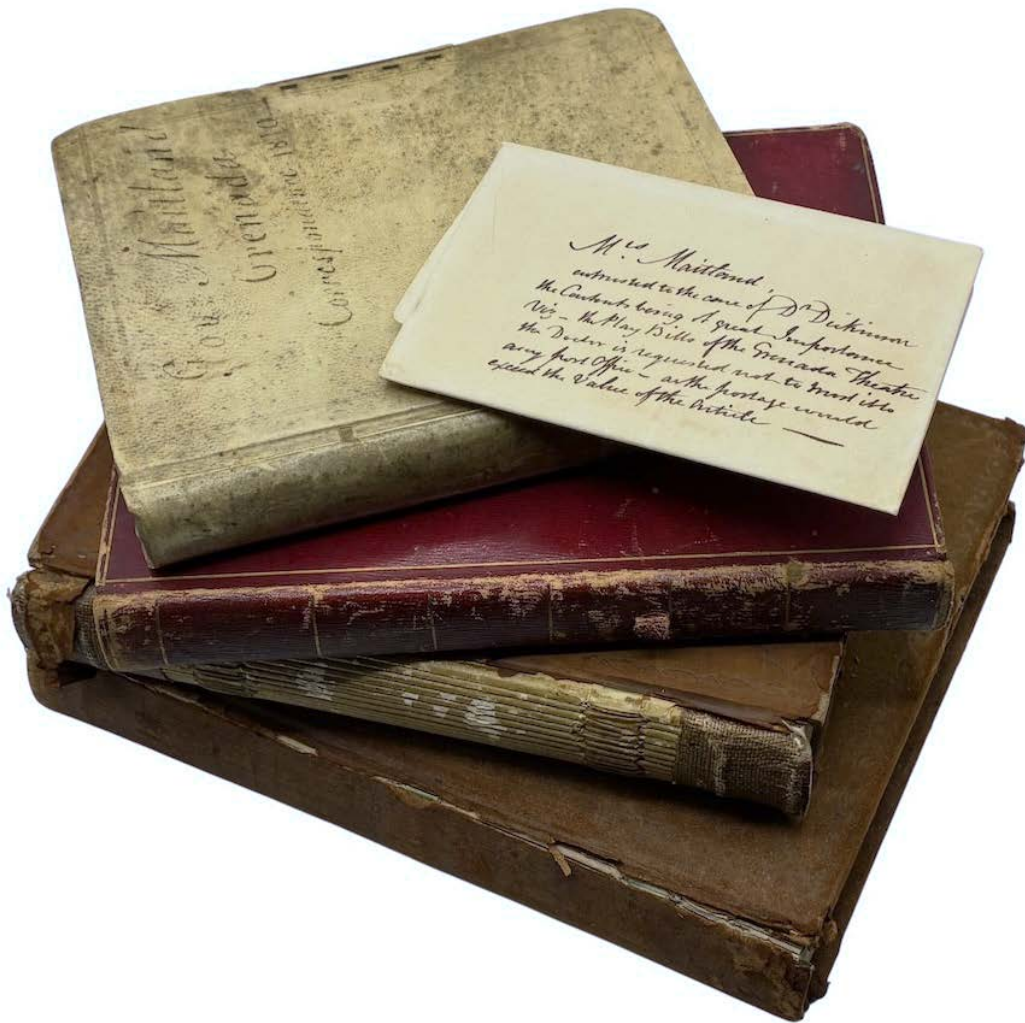 Gov. Maitland
Grenada
Correspondence 1810
Mrs Maitland,
entrusted to the care of Dr Dickinson
the Contents being of great Importance
viz – the Play Bills of the Grenada Theatre
the Doctor is requested not to trust it to
any post Office – as the postage would
exceed the Value of the Article —